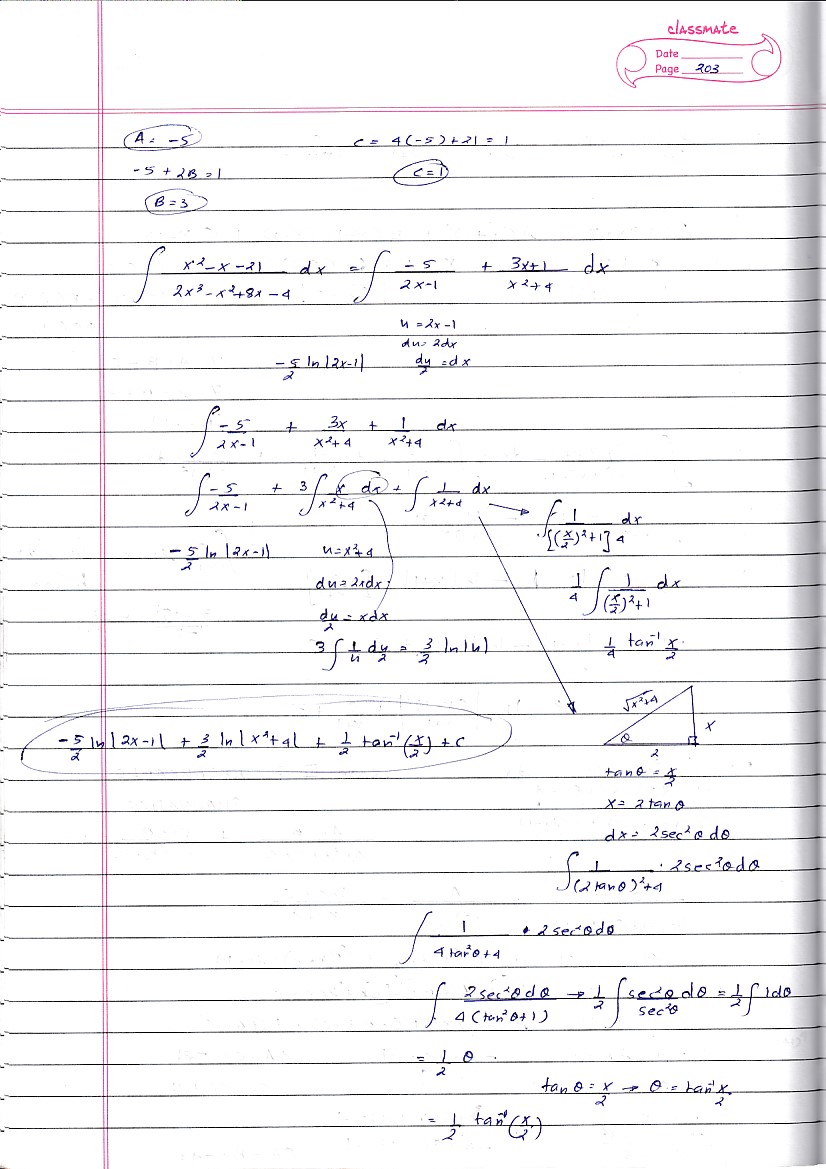 classmate
Date
Page 203
A = -5
c = 4(-5)+21 = 1
-5 + 2B = 1
C = 1
B = 3
∫ (x² - x - 21)/(2x³ - x² + 8x - 4) dx = ∫ -5/(2x-1) + (3x+1)/(x²+4) dx
u = 2x-1
du = 2dx
-5/2 ln|2x-1|
du/2 = dx
∫ -5/(2x-1) + 3x/(x²+4) + 1/(x²+4) dx
∫ -5/(2x-1) + 3∫ x dx/(x²+4) + ∫ 1/(x²+4) dx
∫ 1/([(x/2)²+1]4) dx
-5/2 ln|2x-1|
u = x²+4
du = 2xdx
1/4 ∫ 1/((x/2)²+1) dx
du/2 = xdx
3∫ 1/u du/2 = 3/2 ln|u|
1/4 tan⁻¹ x/2
√x²+4
x
θ
2
-5/2 ln|2x-1| + 3/2 ln|x²+4| + 1/2 tan⁻¹(x/2) + c
tanθ = x/2
x = 2tanθ
dx = 2sec²θdθ
∫ 1/((2tanθ)²+4) · 2sec²θdθ
∫ 1/(4tan²θ+4) · 2sec²θdθ
∫ 2sec²θdθ/(4(tan²θ+1)) → 1/2 ∫ sec²θ/sec²θ dθ = 1/2 ∫ 1dθ
= 1/2 θ
tanθ = x/2 → θ = tan⁻¹ x/2
= 1/2 tan⁻¹(x/2)